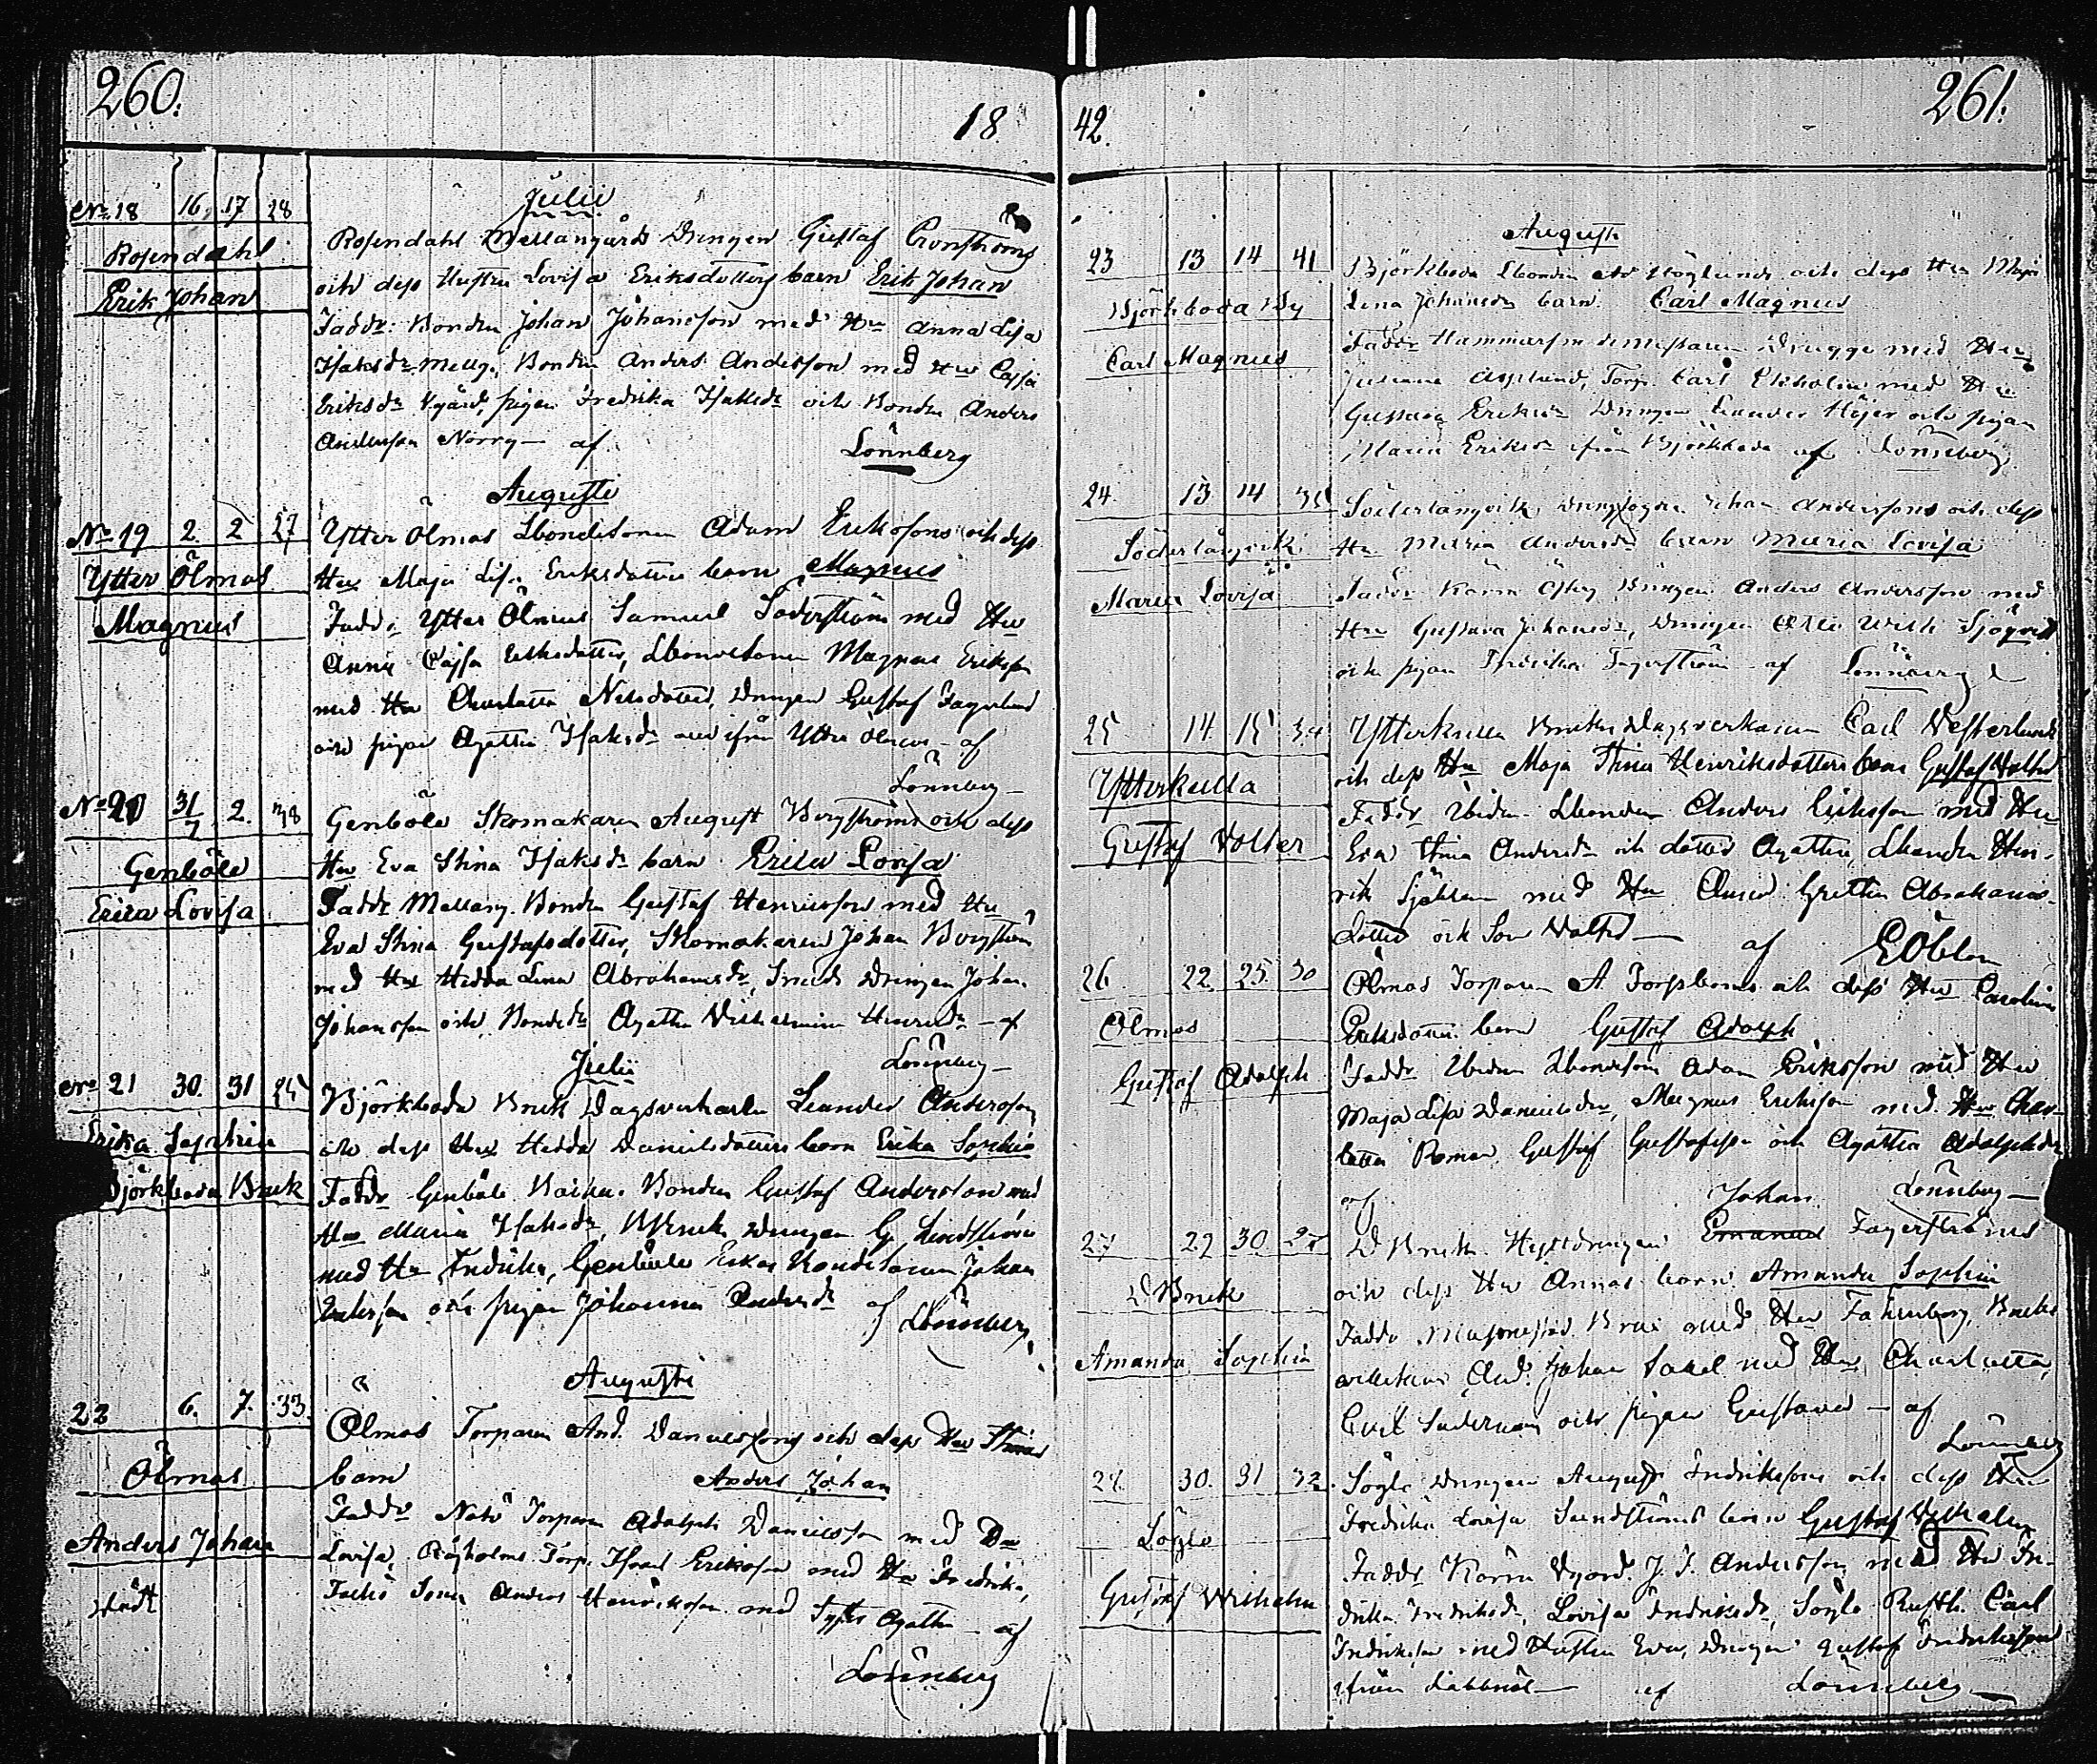 260.
18
No 18 16. 17 28
Rosendahl
Erik Johan
Julii
Rosendahl Mellangårds Drengen Gustaf Cronströms
och dess Hustru Lovisa Eriksdotters barn Erik Johan
Faddr. Bonden Johan Johansson med Hu Anna Lisa
Isaksdr Mellg. Bonden Anders Andersson med Hu Cajsa
Eriksdr pigan Fredrika Isaksdr och Bonden Anders
Andersson Norrg— af
Lönnberg
Augusti
No 19 2. 2 27
Ytter Ölmos
Magnus
Ytter Ölmos Lbondesonen Adam Erikssons och dess
Hu Maja Lisa Eriksdotters barn Magnus
Faddr Ytter Ölmos Samuel Söderström med Hu
Anna Cajsa Eriksdotter, Lbondesonen Magnus Eriksson
med Hu Charlotta Nilsdotter, Drengen Gustaf Fagerlund
och pigan Agatha Isaksdr ifrån Ytter Ölmos — af
Lönnberg—
No 20 31/7 2. 38
Genböle
Erica Lovisa
Genböle Skomakaren August Bergströms och dess
Hu Eva Stina Isaksdr barn Erica Lovisa
Faddr Mellang. Bonden Gustaf Henricsson med Hu
Eva Stina Gustafsdotter, Skomakaren Johan Bergström
med Hu Hedda Lena Abrahamsdr, Smeds Drengen Johan
Johansson och Bondedr Agatha Vilhelmina Henricsdr — af
Lönnberg—
Julii
No 21 30. 31 25
Erika Sophia
Björkboda Bruk
Björkboda Bruk Dagsverkarlen Leander Anderssons
och dess Hu Hedda Danielsdotters barn Erika Sophia
Faddr Genböle Bonden Gustaf Andersson med
Hu Maria Isaksdr, BBruk Drengen G. Lindström
med Hu Fredrika, Genböle Bondesonen Johan
och pigan Johanna Andersdr af Lönnberg
Augusti
22 6. 7. 33.
Ölmos
Anders Johan
Ölmos Torparen And. Danielssons och dess Hu Stinas
barn Anders Johan
Faddr Nötö Torparen Adolph Danielsson med
Lovisa, Torp. Israel Eriksson med Hu Fredrika,
Anders Henriksson med Syster Agatha — af
Lönnberg
42.
261.
Augusti
23 13 14 41
Björkboda By
Carl Magnus
Björkboda Lbonden Höglunds och dess Hu Maja
Lena Johansdr barn Carl Magnus
Faddr Hammarsmedsmästaren Brugge med Hu
Asplund, Torp. Carl Ekholm med Hu
Gustava Eriksdr Drengen Leander Höijer och pigan
Maria Eriksdr ifrån Björkboda af Lönnberg
24. 13 14 35
Söderlångvik
Maria Lovisa
Söderlångvik Johan Anderssons och dess
Hu Maria Andersdr barn Maria Lovisa
Faddr Kärra Drengen Anders Andersson med
Hu Gustava Johansdr, Drengen Sjöqvist
och pigan Fredrika Fagerström af Lönnberg
25 14 15 34
Ytterkulla
Gustaf Volter
Ytterkulla Bruks Dagsverkaren Carl Vesterlunds
och dess Hu Maja Stina Henriksdotters barn Gustaf Volter
Faddr Lbonden Anders Eriksson med Hu
Eva Stina Andersdr och dotter Agatha, Lbonden Hen-
rik Sjöblom med Hu Anna Gretha Abrahams-
dotter och Son Volter — af E Öblom
26 22. 25. 30
Ölmos
Gustaf Adolph
Ölmos Torparen A. Forsbloms och dess Hu Carolina
Eriksdotters barn Gustaf Adolph
Faddr Lbondeson Adam Eriksson med Hu
Maja Lisa Danielsdr, Magnus Eriksson med Hu Char-
lotta Roman Gustaf Gustafsson och Agatha Adolphsdr
af Lönnberg—
27 29 30 27
DBruk
Amanda Sophia
Johan
D Bruk Emanuel Fagerströms
och dess Hu Annas barn Amanda Sophia
Faddr med Hu Falkenborg, Bruks
And. Johan med Hu Charlotta,
Carl Söderman och pigan Gustava — af
Lönnberg
28. 30. 31 32.
Söglo
Gustaf Wilhelm
Söglo Drengen August Fredrikssons och dess Hu
Fredrika Lovisa Sundströms barn Gustaf Wilhelm
Faddr Kärra J. F. Andersson med Hu Fre-
drika Fredriksdr, Lovisa Fredriksdr, Söglo Rusth. Carl
Fredriksson med Hustru Eva, Drengen Gustaf Fredriksson
ifrån Labbnäs — af Lönnberg—